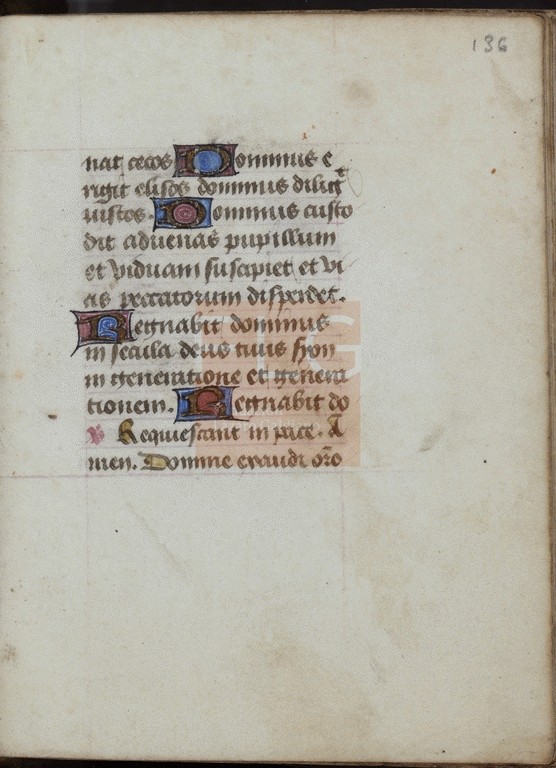 136
nat cecos Dominus e
rigit elisos dominus diligit
iustos. Dominus custo
dit advenas pupillum
et viduam suscipiet et vi
as peccatorum disperdet.
Regnabit dominus
in secula deus tuus syon
in generatione et genera
tionem. Regnabit do
℣ Requiescant in pace. A
men. Domine exaudi oro